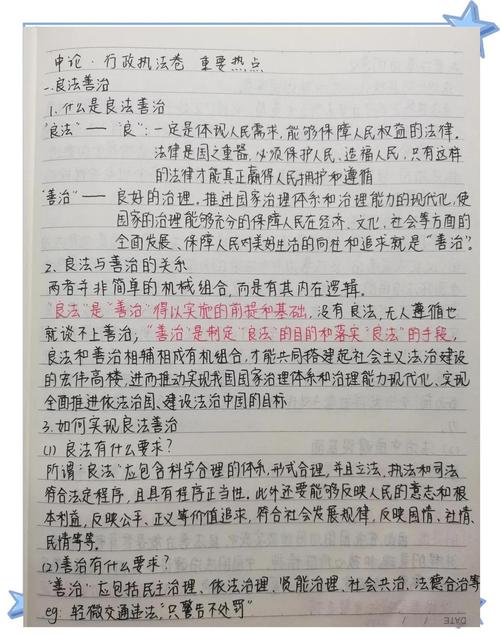 申论·行政执法卷 重要热点
一.良法善治
1.什么是良法善治
"良法"——"良":一定是体现人民需求,能够保障人民权益的法律。
法律是国之重器,必须保护人民、造福人民,只有这样
的法律才能真正赢得人民拥护和遵循
"善治"—— 良好的治理。推进国家治理体系和治理能力的现代化,使
国家的治理能够充分的保障人民在经济、文化、社会等方面的
全面发展、保障人民对美好生活的向往和追求就是"善治"。
2.良法与善治的关系
两者并非简单的机械组合,而是有其内在逻辑。
"良法"是"善治"得以实施的前提和基础,没有良法,无人遵循也
就谈不上善治;"善治"是制定"良法"的目的和落实"良法"的手段,
良法和善治相辅相成有机组合,才能共同搭建起社会主义法治建设
的宏伟高楼,进而推动实现我国国家治理体系和治理能力现代化、实现
全面推进依法治国、建设法治中国的目标
3.如何实现良法善治
(1)良法有什么要求?
所谓"良法"应包含科学合理的体系,形式合理,并且立法、执法和司法
符合法定程序,且具有程序正当性。此外还要能够反映人民的意志和根
本利益,反映公平、正义等价值追求,符合社会发展规律,反映国情、社情、
民情等等。
(2)善治有什么要求?
"善治"应包括民主治理、依法治理、贤能治理、社会共治、法德合治等
eg:轻微交通违法,"只警告不处罚"
DATE